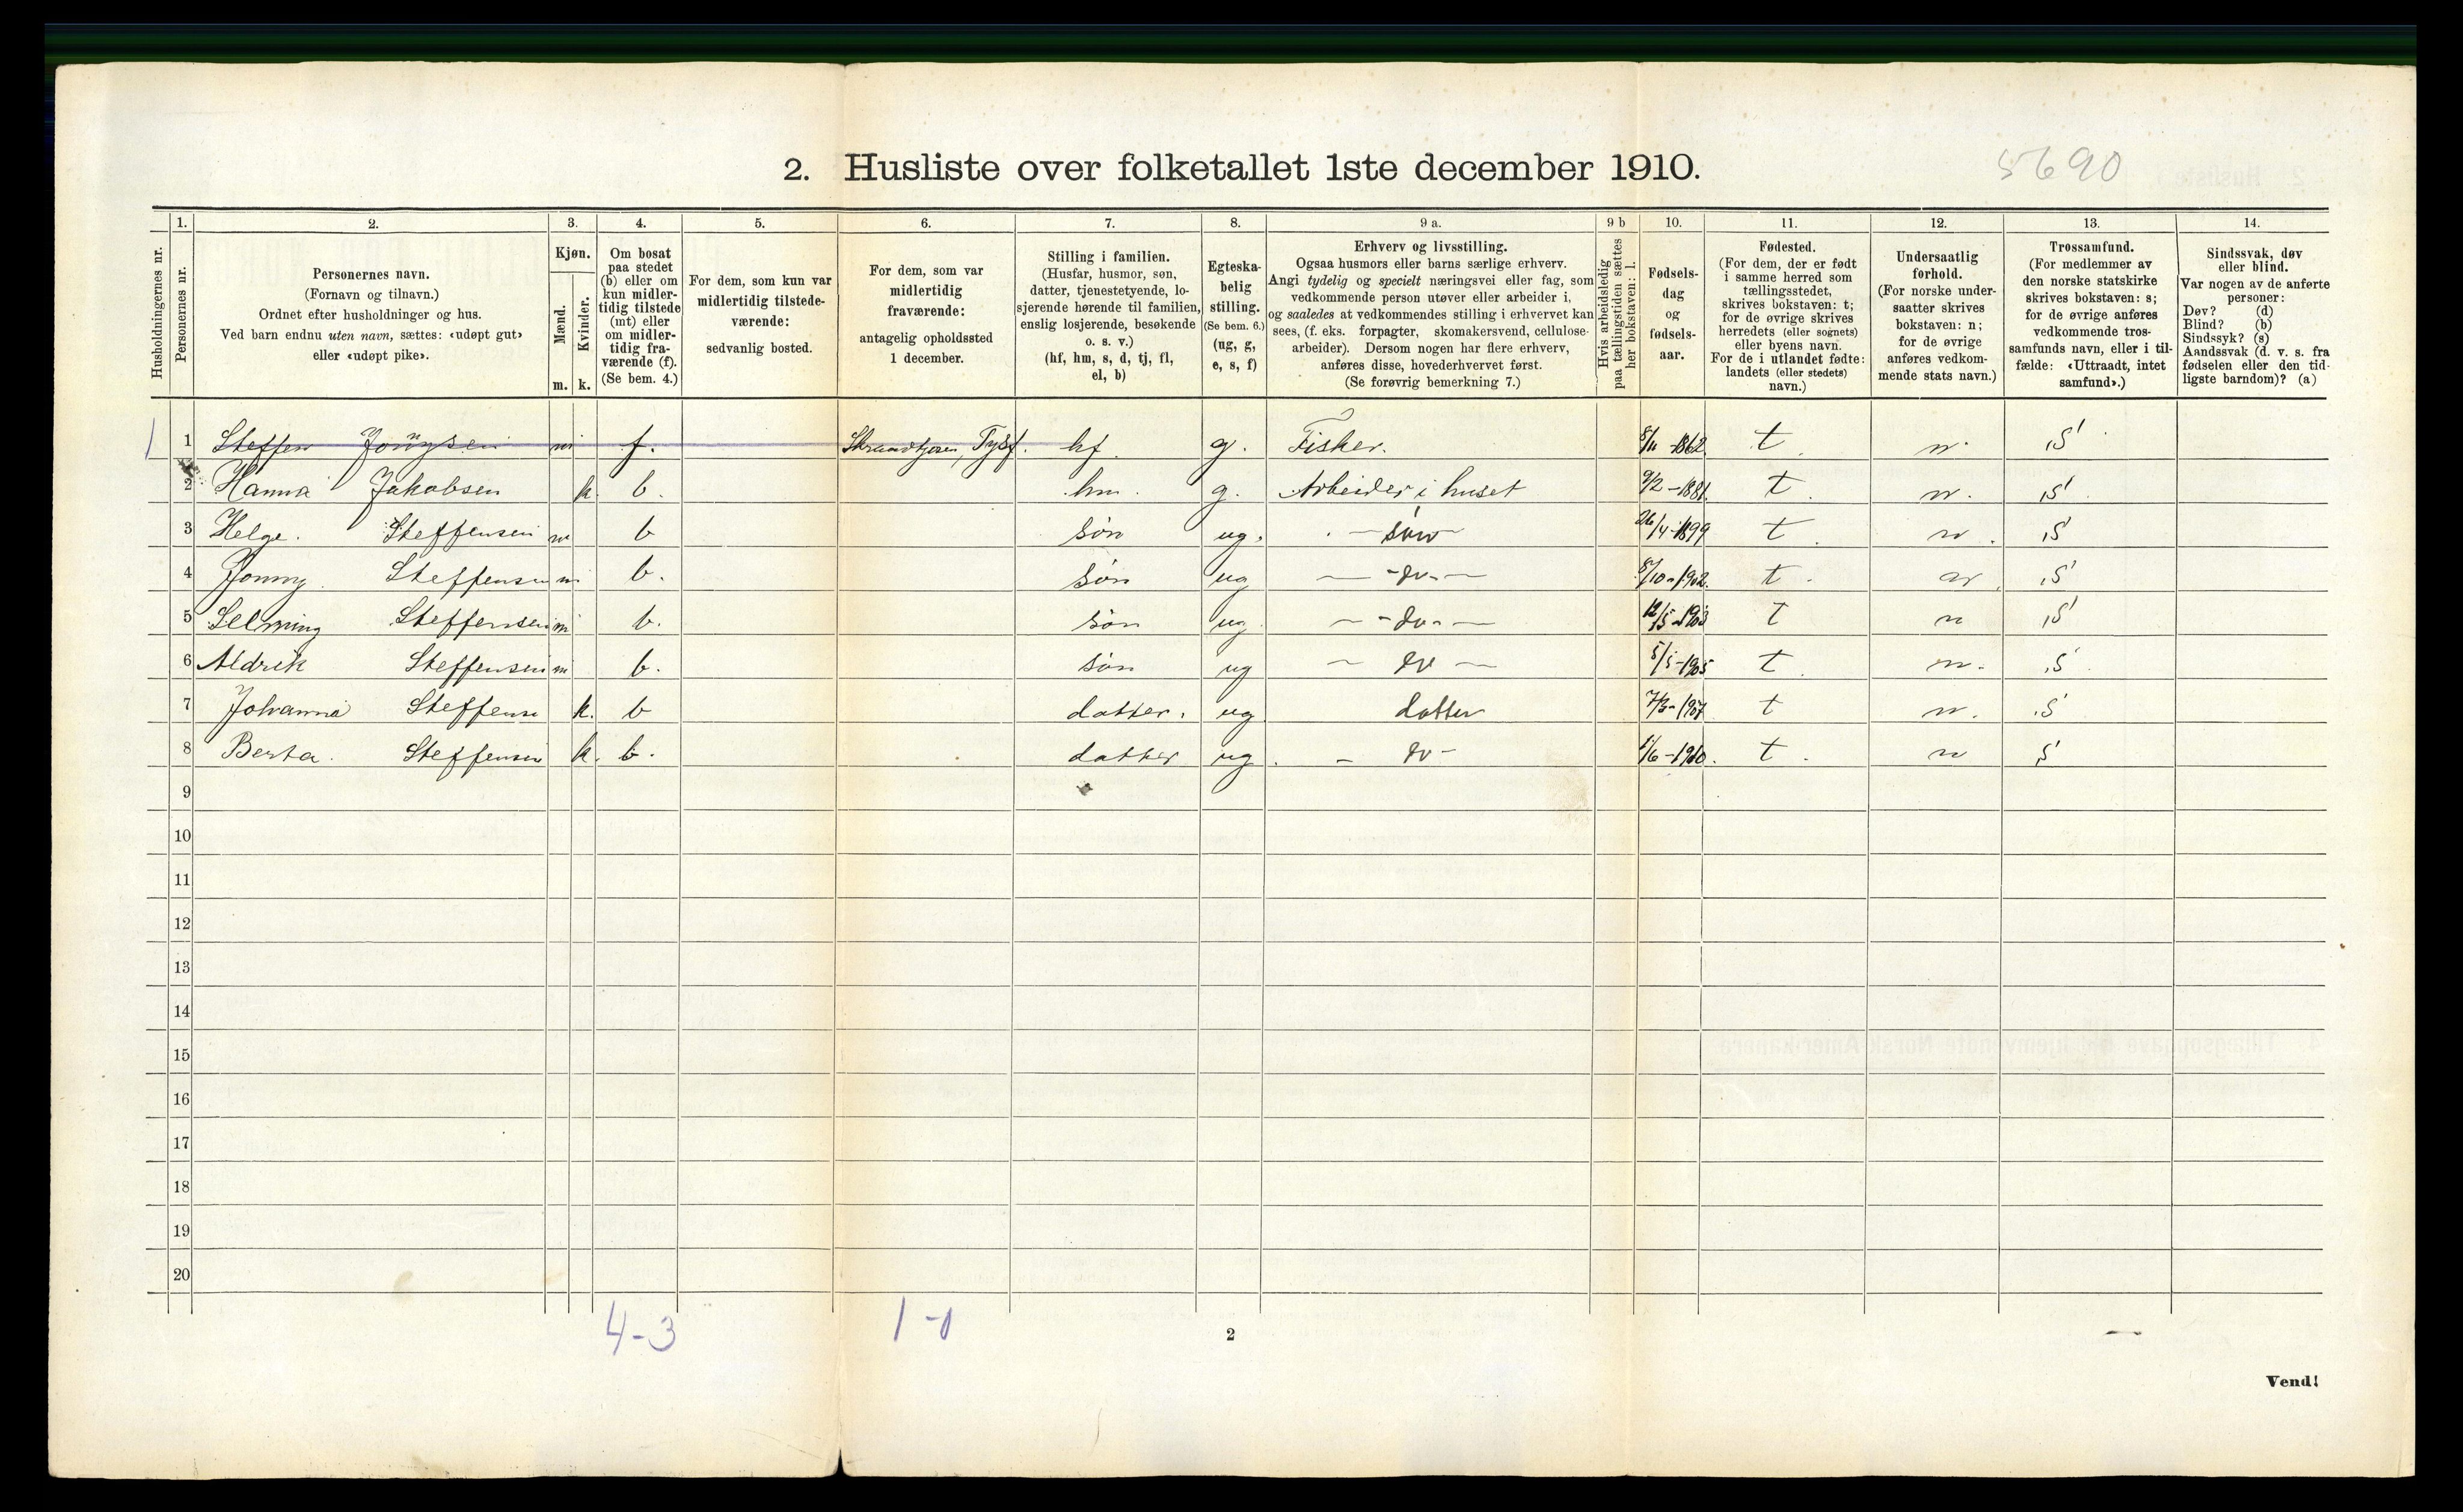 5690
2. Husliste over folketallet 1ste december 1910.
1. 2. 3. 4. 5. 6. 7. 8. 9 a. 9 b 10. 11. 12. 13. 14.
Husholdningernes nr.
Personernes nr.
Personernes navn.
(Fornavn og tilnavn.)
Ordnet efter husholdninger og hus.
Ved barn endnu uten navn, sættes: «udøpt gut»
eller «udøpt pike».
Kjøn.
Mænd.
Kvinder.
m. k.
Om bosat
paa stedet
(b) eller om
kun midler-
tidig tilstede
(mt) eller
om midler-
tidig fra-
værende (f).
(Se bem. 4.)
For dem, som kun var
midlertidig tilstede-
værende:
sedvanlig bosted.
For dem, som var
midlertidig
fraværende:
antagelig opholdssted
1 december.
Stilling i familien.
(Husfar, husmor, søn,
datter, tjenestetyende, lo-
sjerende hørende til familien,
enslig losjerende, besøkende
o. s. v.)
(hf, hm, s, d, tj, fl,
el, b)
Egteska-
belig
stilling.
(Se bem. 6.)
(ug, g,
e, s, f)
Erhverv og livsstilling.
Ogsaa husmors eller barns særlige erhverv.
Angi tydelig og specielt næringsvei eller fag, som
vedkommende person utøver eller arbeider i,
og saaledes at vedkommendes stilling i erhvervet kan
sees, (f. eks. forpagter, skomakersvend, cellulose-
arbeider). Dersom nogen har flere erhverv,
anføres disse, hovederhvervet først.
(Se forøvrig bemerkning 7.)
Hvis arbeidsledig
paa tællingstiden sættes
her bokstaven: l.
Fødsels-
dag
og
fødsels-
aar.
Fødested.
(For dem, der er født
i samme herred som
tællingsstedet,
skrives bokstaven: t;
for de øvrige skrives
herredets (eller sognets)
eller byens navn.
For de i utlandet fødte:
landets (eller stedets)
navn.)
Undersaatlig
forhold.
(For norske under-
saatter skrives
bokstaven: n;
for de øvrige
anføres vedkom-
mende stats navn.)
Trossamfund.
(For medlemmer av
den norske statskirke
skrives bokstaven: s;
for de øvrige anføres
vedkommende tros-
samfunds navn, eller i til-
fælde: «Uttraadt, intet
samfund».)
Sindssvak, døv
eller blind.
Var nogen av de anførte
personer:
Døv? (d)
Blind? (b)
Sindssyk? (s)
Aandssvak (d. v. s. fra
fødselen eller den tid-
ligste barndom)? (a)
1 1 Steffen m f. Tysf. hf. g. Fisker. 8/11 1862 t n. S
2 Hanna Jakobsen k. b. hm. g. Arbeider i huset 9/2-1881 t. n. S
3 Helge. Steffensen m b søn ug. — søn — 26/4-1899 t n. S
4 Jonny Steffensen m b. søn ug — do. — 8/10-1902. t. n. S
5 Selming Steffensen m b. søn ug — do. — 12/5-1903 t n S
6 Aldrik Steffensen m b. søn ug — do — 5/5-1905 t n. S
7 Johanna Steffense k. b datter. ug datter 7/3-1907 t n. S
8 Berta. Steffensen k. b. datter ug. — do - 1/6-1910. t. n S
9
10
11
12
13
14
15
16
17
18
19
20
4-3 1-0
2
Vend!